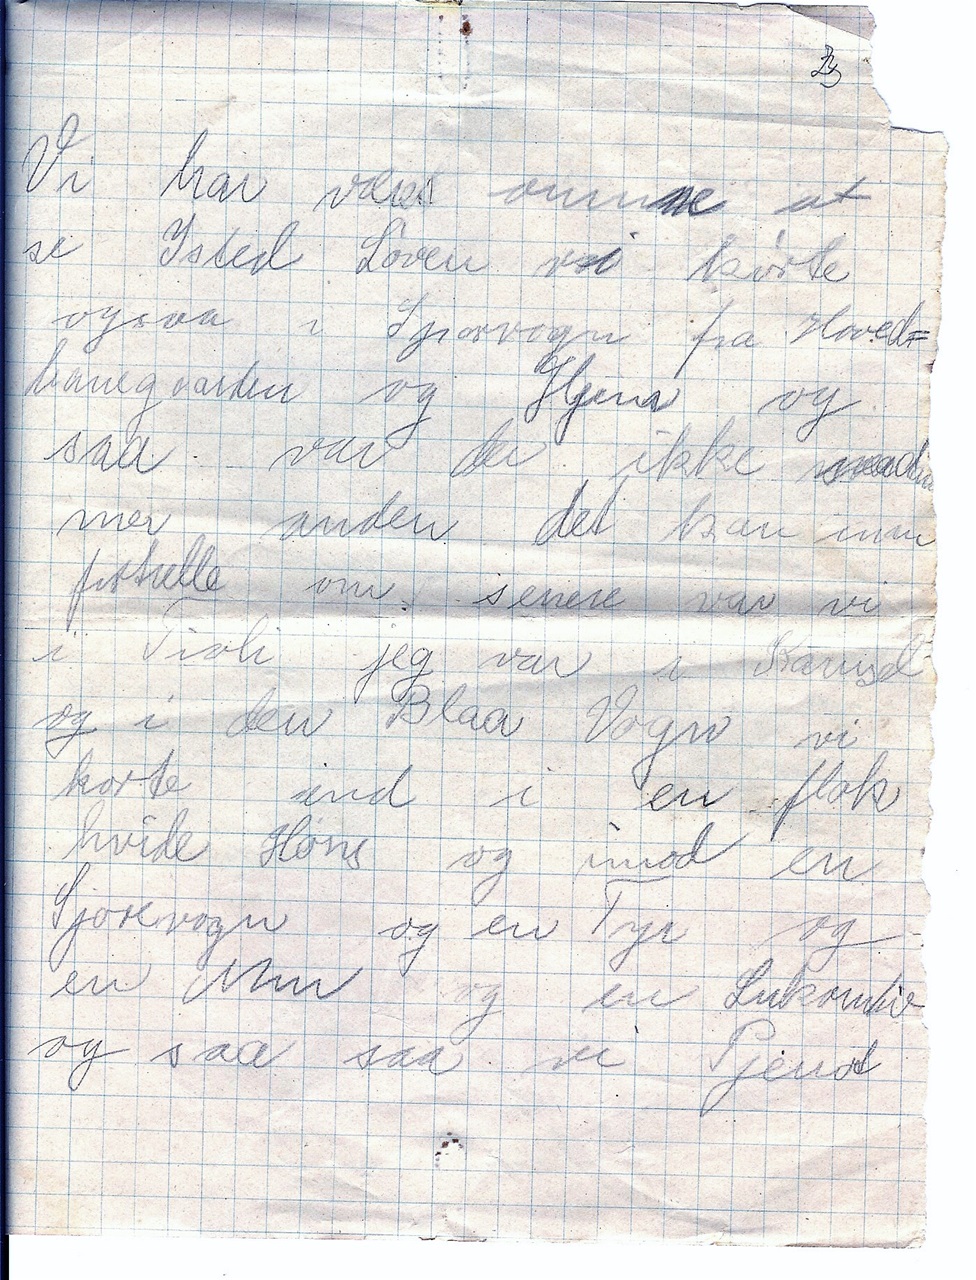 23
Vi har vært omme at
se Isted Löven vi kørte
ogsaa i Sporvogn fra Hoved=
banegaarden og Hjem og
saa var der ikke
mer anden det kan man
fortælle om. senere var vi
i Tivoli jeg var i Karusel
og i den Blaa Vogn vi
kørte ind i en flok
hvide Høns og imod en
Sporvogn og en Tyr og
en Mur og en Lukomtiv
og saa saa vi Pjerot